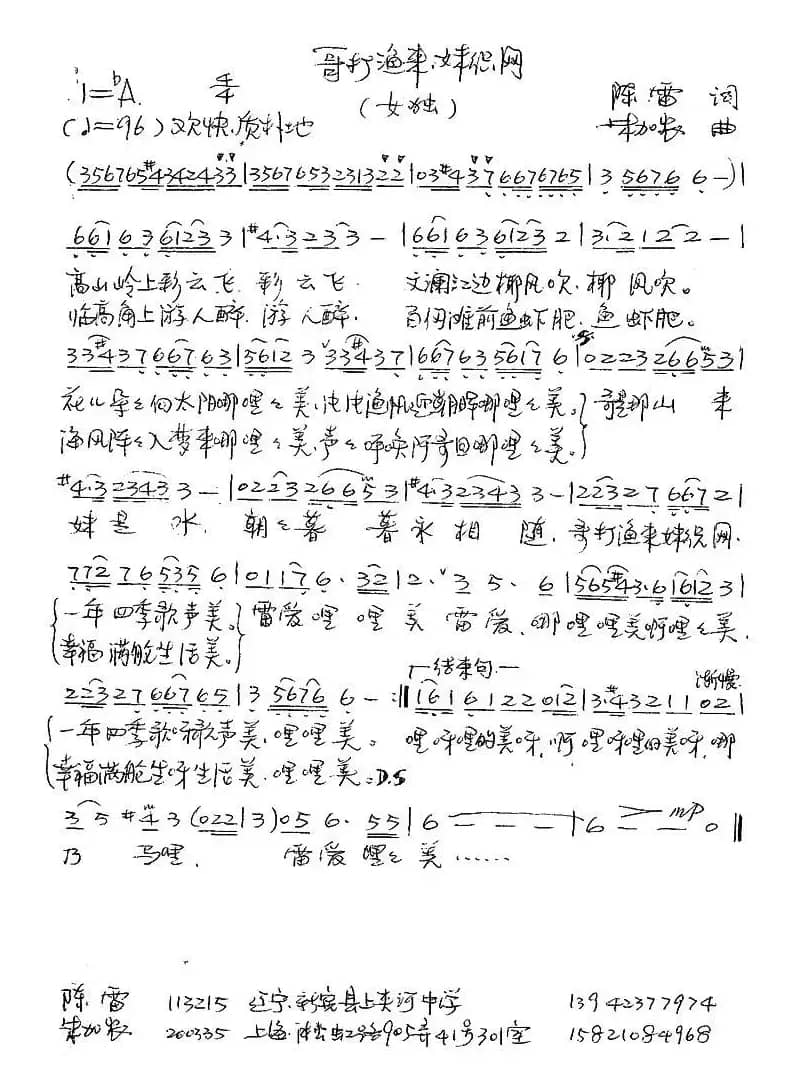 哥打渔来妹织网
1=♭A 4/4 (女独) 陈雷 词
(♩=96) 欢快.质朴地 朱加农 曲
(356765#4342433|3567653231322|03#4376676765|356766-)|
661636123 3|#4·3233-|6616361232|3·2122-|
高山岭上彩云飞.彩云飞. 文澜江边椰风吹.椰风吹。
临高角上游人醉.游人醉. 百仞滩前鱼虾肥.鱼虾肥。
33#43766763|56123 33#437|6676356176|022326653|
花儿朵朵向太阳哪哩哩美,点点渔帆迎朝晖哪哩哩美。哥是那山来
海风阵阵入梦来哪哩哩美,声声呼唤阿哥回哪哩哩美。
#4·323433-|022326653|#4·323433-|223276672|
妹是水,朝朝暮暮永相随,哥打渔来妹织网.
772765356|01176·32|2·35·6|565#43·616123|
一年四季歌声美。雷爱哩哩美雷爱.哪哩哩美啊哩哩美.
幸福满舱生活美。
结束句 渐慢
2232766765|356766-:‖161612201 2|3·#4321102|
一年四季歌呀歌声美.哩哩美。 哩呀哩的美呀.啊哩呀哩的美呀.哪
幸福满舱生呀生活美.哩哩美。D.S
35#43(022|3)056·55|6---|6--0‖ mp
乃马哩. 雷爱哩哩美……
陈雷 113215 辽宁.新宾县上夹河中学 13942377974
朱加农 200335 上海 905弄41号301室 15821084968